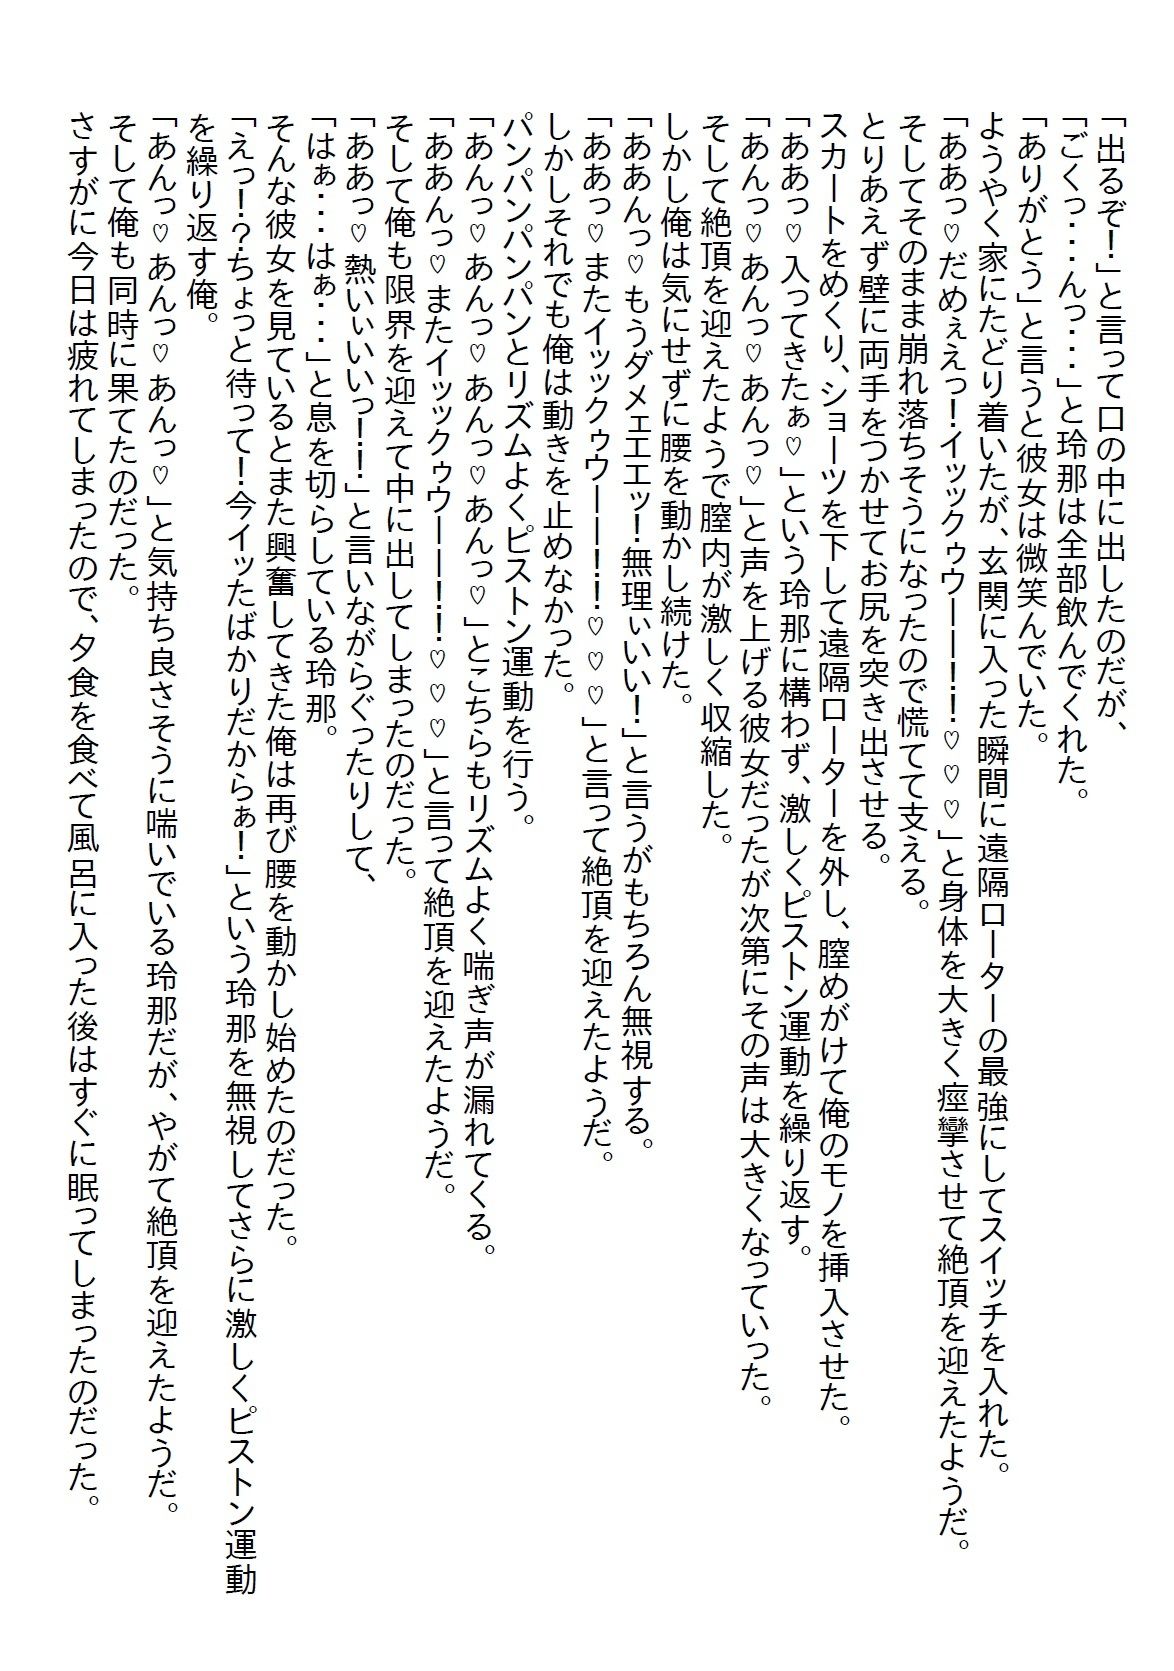 「出るぞ！」と言って口の中に出したのだが、
「ごくっ・・・んっ・・・」と玲那は全部飲んでくれた。
「ありがとう」と言うと彼女は微笑んでいた。
ようやく家にたどり着いたが、玄関に入った瞬間に遠隔ローターの最強にしてスイッチを入れた。
「ああっ♡だめぇえっ！イッックゥウーー！！♡♡♡」と身体を大きく痙攣させて絶頂を迎えたようだ。
そしてそのまま崩れ落ちそうになったので慌てて支える。
とりあえず壁に両手をつかせてお尻を突き出させる。
スカートをめくり、ショーツを下して遠隔ローターを外し、膣めがけて俺のモノを挿入させた。
「ああっ♡入ってきたぁ♡」という玲那に構わず、激しくピストン運動を繰り返す。
「あんっ♡あんっ♡あんっ♡」と声を上げる彼女だったが次第にその声は大きくなっていった。
そして絶頂を迎えたようで膣内が激しく収縮した。
しかし俺は気にせずに腰を動かし続けた。
「ああんっ♡もうダメェエエッ！無理ぃいい！」と言うがもちろん無視する。
「ああっ♡またイッックゥウーー！！♡♡♡」と言って絶頂を迎えたようだ。
しかしそれでも俺は動きを止めなかった。
パンパンパンパンとリズムよくピストン運動を行う。
「あんっ♡あんっ♡あんっ♡あんっ♡」とこちらもリズムよく喘ぎ声が漏れてくる。
「ああんっ♡またイッックゥウーー！！♡♡♡」と言って絶頂を迎えたようだ。
そして俺も限界を迎えて中に出してしまったのだった。
「ああっ♡熱いぃいいっ！！」と言いながらぐったりして、
「はぁ・・・はぁ・・・」と息を切らしている玲那。
そんな彼女を見ているとまた興奮してきた俺は再び腰を動かし始めたのだった。
「えっ！？ちょっと待って！今イッたばかりだからぁ！」という玲那を無視してさらに激しくピストン運動
を繰り返す俺。
「あんっ♡あんっ♡あんっ♡」と気持ち良さそうに喘いでいる玲那だが、やがて絶頂を迎えたようだ。
そして俺も同時に果てたのだった。
さすがに今日は疲れてしまったので、夕食を食べて風呂に入った後はすぐに眠ってしまったのだった。